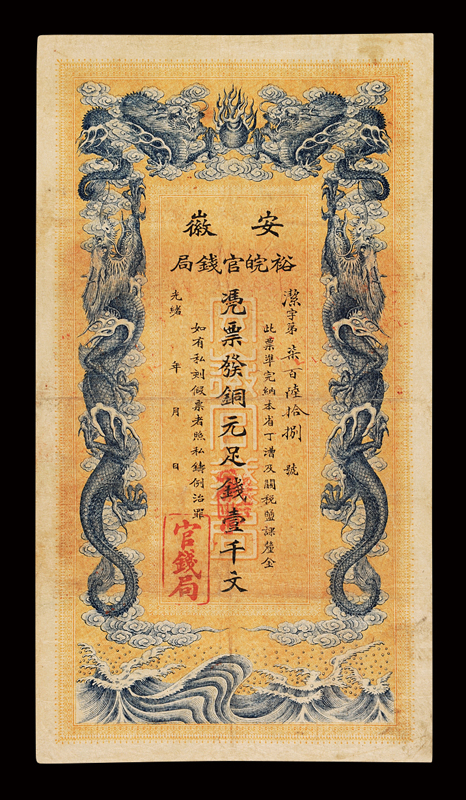 安徽
裕皖官錢局
潔字第柒百陸拾捌號
此票準完納本省丁漕及關稅鹽課釐金
憑票發銅元足錢壹千文
如有私刻假票者照私鑄例治罪
光緒 年 月 日
官錢局